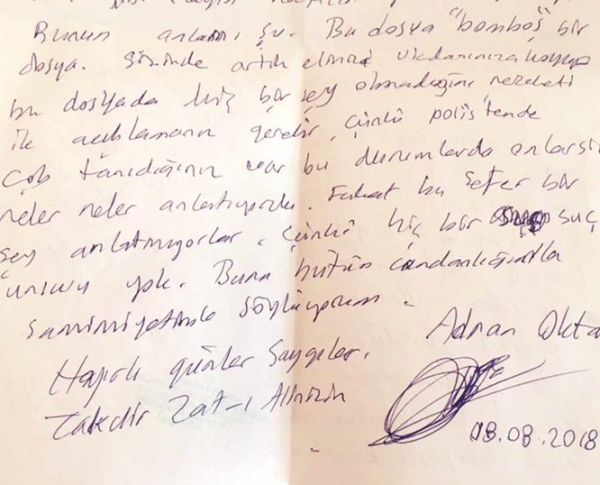 Bunun anlamı şu. Bu dosya "bomboş" bir
dosya. Sizinde artık elinizi vicdanınıza koyup
bu dosyada hiç bir şey olmadığını nezaketi
ile açıklamanız gerekir, çünkü polis'tende
çok tanıdığınız var bu durumlarda anlarsı
neler neler anlatıyorlar. Fakat bu sefer bir
şey anlatmıyorlar, çünkü hiç bir suç
unsuru yok. Bunu bütün
samimiyetimle söylüyorum.
Adnan Okta
Hayırlı günler Saygılar.
Takdir Zat-ı Alinizin
08.08.2018